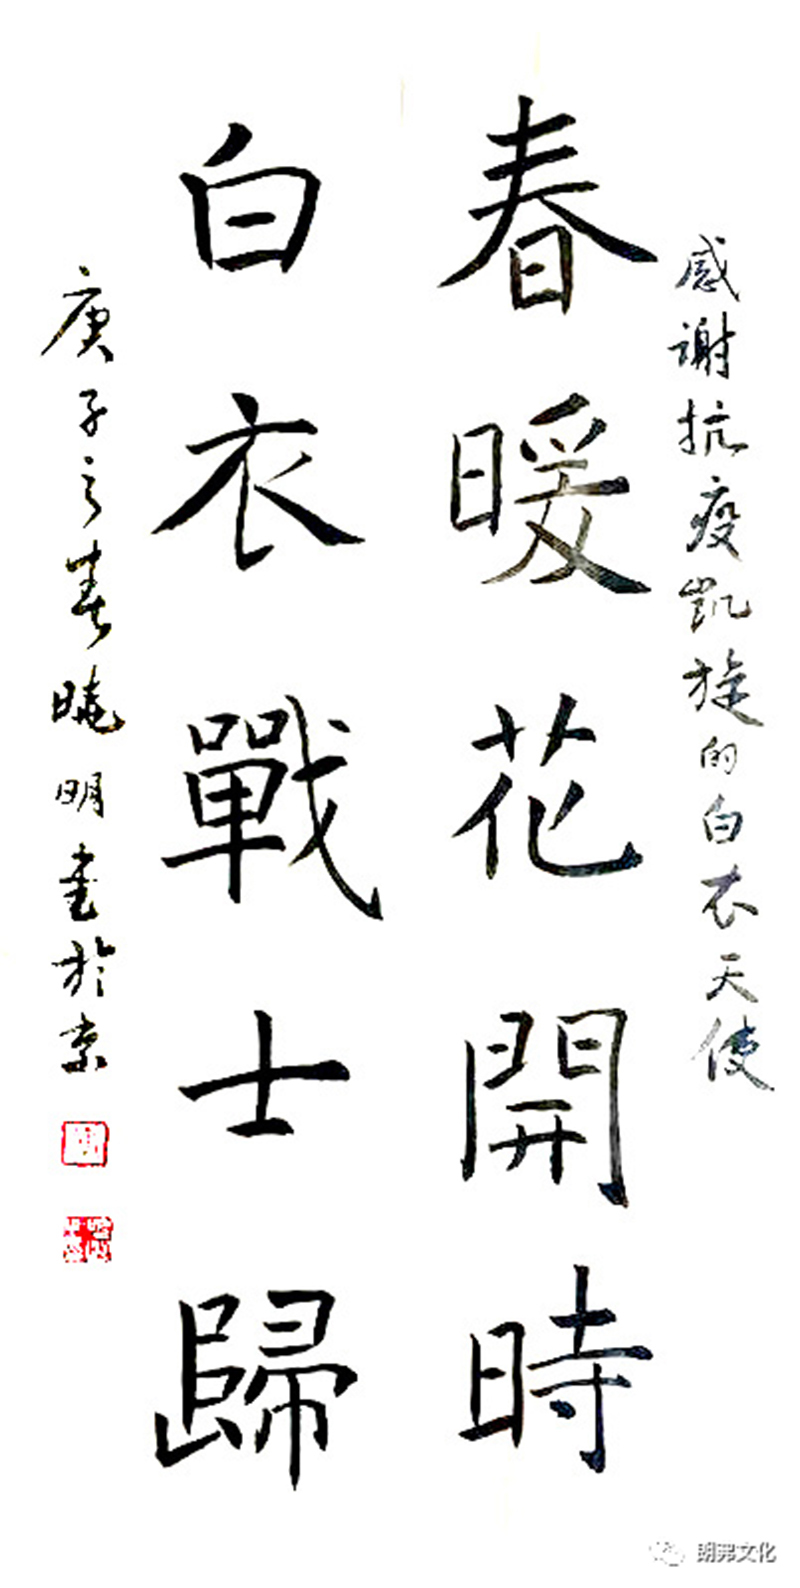 感谢抗疫凯旋的白衣天使
春暖花開時
白衣戰士歸
庚子之春晓明书於京
朗弗文化